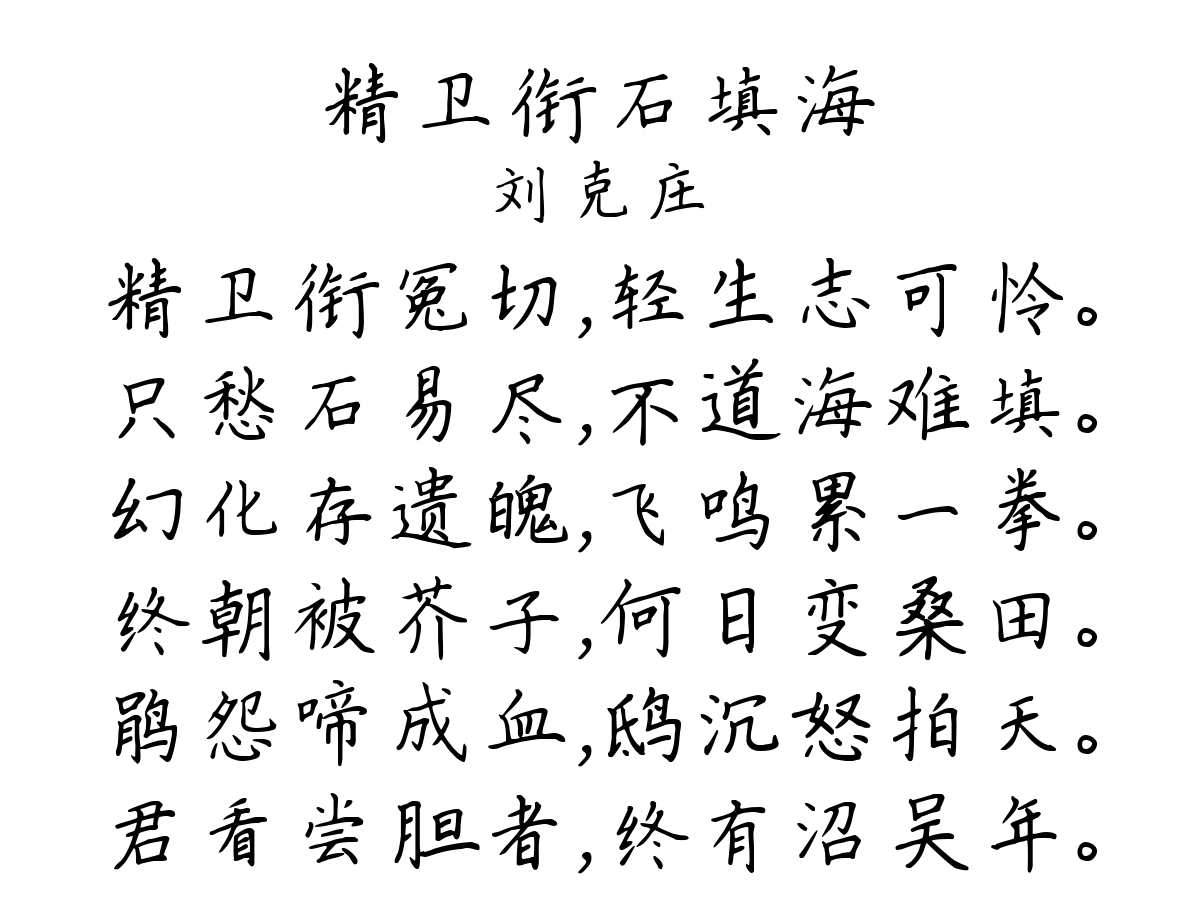 精卫衔石填海
刘克庄
精卫衔冤切,轻生志可怜。
只愁石易尽,不道海难填。
幻化存遗魄,飞鸣累一拳。
终朝被芥子,何日变桑田。
鹃怨啼成血,鸱沉怒拍天。
君看尝胆者,终有沼吴年。